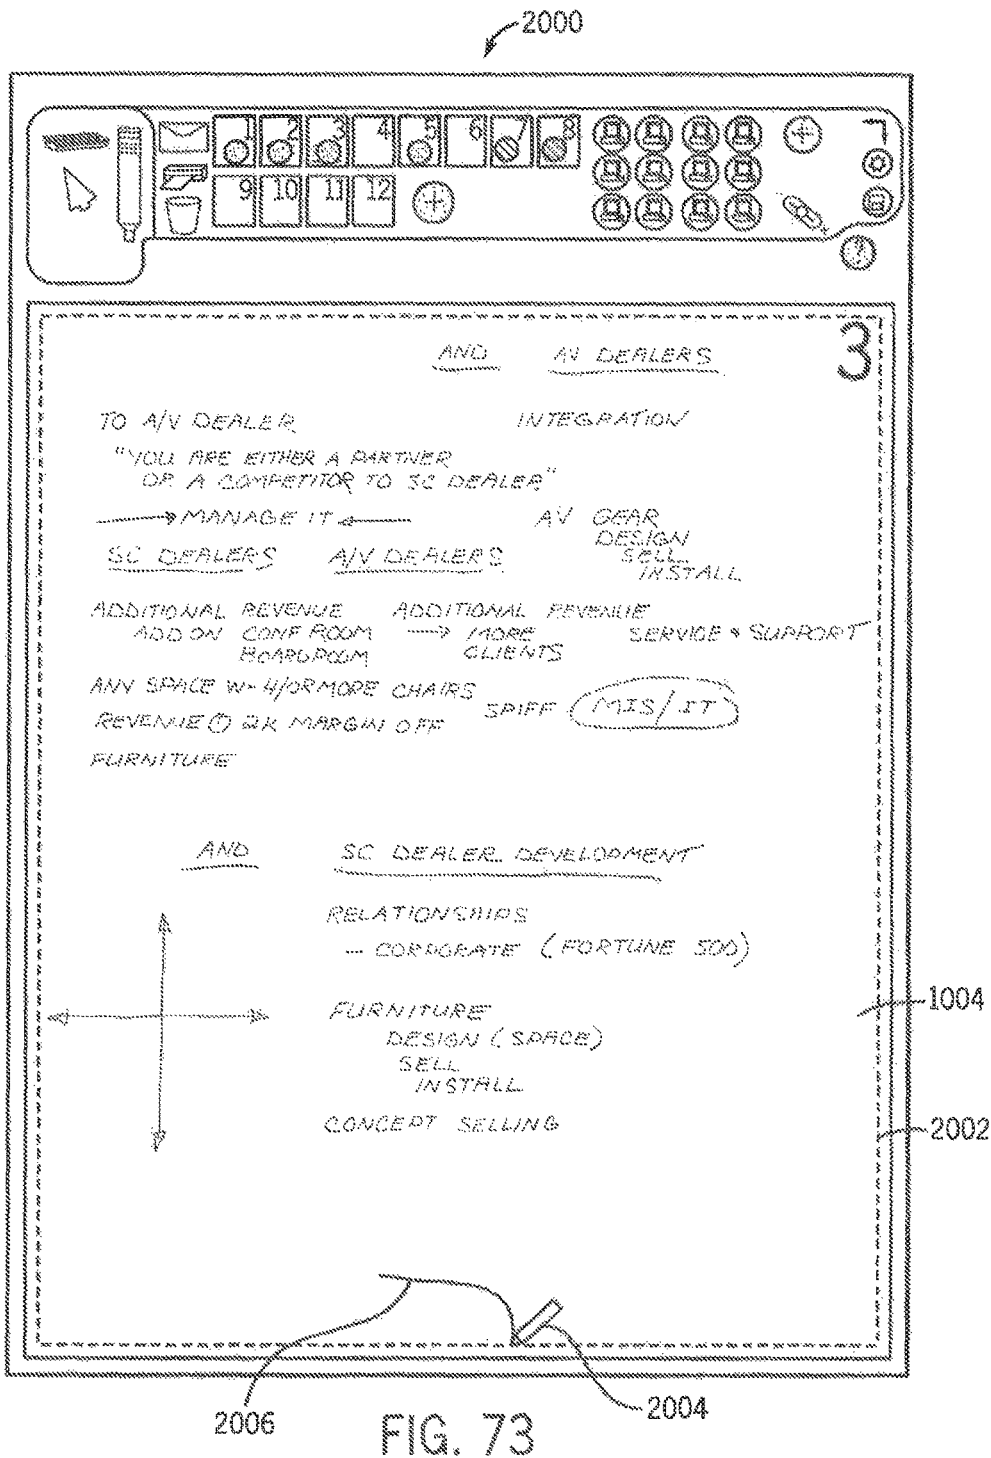 2000
1 2 3 4 5 6 7 8
9 10 11 12
?
3
AND AV DEALERS
TO A/V DEALER INTEGRATION
"YOU ARE EITHER A PARTNER
OR A COMPETITOR TO SC DEALER"
MANAGE IT
AV GEAR
DESIGN
SELL
INSTALL
SC DEALERS A/V DEALERS
ADDITIONAL REVENUE
ADD ON CONF ROOM
BOARDROOM
ADDITIONAL REVENUE
MORE
CLIENTS
SERVICE & SUPPORT
ANY SPACE W- 4/OR MORE CHAIRS
SPIFF MIS/IT
REVENUE 2K MARGIN OFF
FURNITURE
AND SC DEALER DEVELOPMENT
RELATIONSHIPS
- CORPORATE (FORTUNE 500)
1004
FURNITURE
DESIGN (SPACE)
SELL
INSTALL
CONCEPT SELLING
2002
2006
2004
FIG. 73